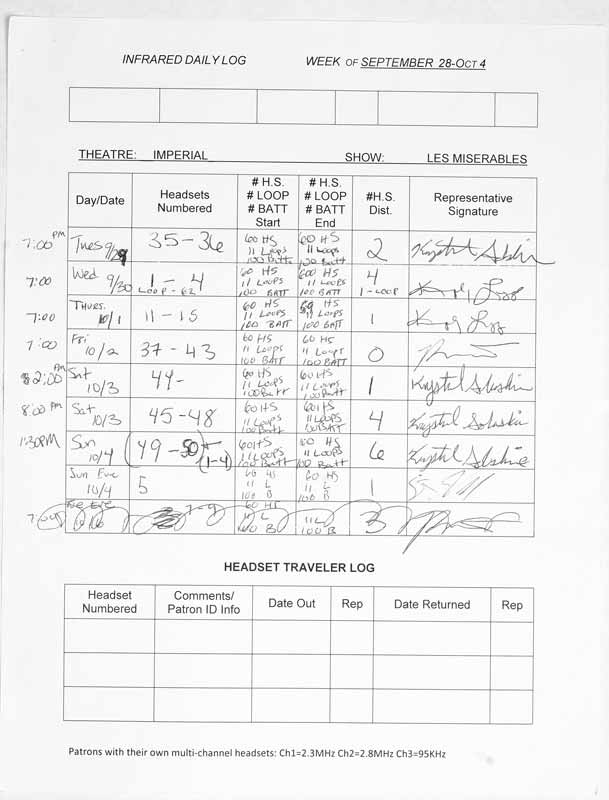 INFRARED DAILY LOG WEEK OF SEPTEMBER 28-OCT 4
THEATRE: IMPERIAL SHOW: LES MISERABLES
Day/Date Headsets Numbered # H.S. # LOOP # BATT Start # H.S. # LOOP # BATT End #H.S. Dist. Representative Signature
7:00 PM Tues 9/29 35-36 60 HS 11 Loops 100 Batt 60 HS 11 Loops 100 Batt 2 Krystal
7:00 Wed 9/30 1-4 LOOP-62 60 HS 11 LOOPS 100 BATT 60 HS 11 LOOPS 100 BATT 4 1-LOOP
7:00 THURS. 10/1 11-15 60 HS 11 LOOPS 100 BATT HS 11 LOOPS 100 BATT 1
7:00 Fri 10/2 37-43 60 HS 11 LOOPS 100 BATT 60 HS 11 Loops 100 BATT 0
2:00 Sat 10/3 44- 60 HS 11 Loops 100 Batt 60 HS 11 Loops 100 Batt 1 Krystal
8:00 PM Sat 10/3 45-48 60 HS 11 Loops 100 Batt 60 HS 11 Loops 100 Batt 4 Krystal
1:30PM Sun 10/4 (49-50) (1-4) 60 HS 11 Loops 100 Batt 60 HS 11 Loops 100 Batt 6 Krystal
Sun Eve 10/4 5 60 HS 11 L 100 B 60 HS 11 L 100 B 1
Eve 7-9 60 HS 11 L 100 B 11 L 100 B 3
HEADSET TRAVELER LOG
Headset Numbered Comments/ Patron ID Info Date Out Rep Date Returned Rep
Patrons with their own multi-channel headsets: Ch1=2.3MHz Ch2=2.8MHz Ch3=95KHz